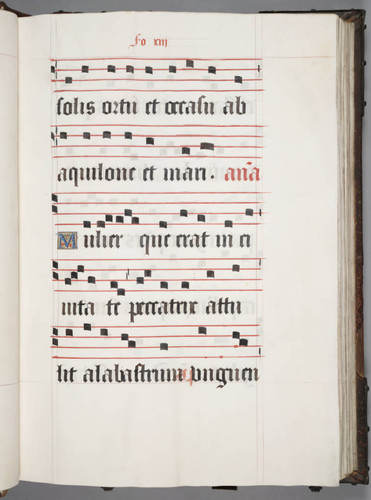 Fo xiij
solis ortū et occasu ab
aquilone et mari. an̄a
Mulier que erat in ci
uita te peccatrix attu
lit alabastrum unguen